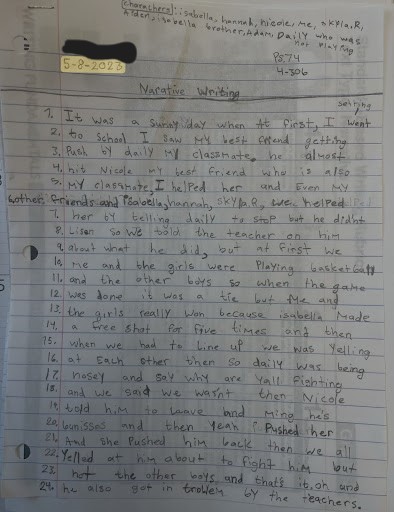 Charachers: isabella, hannah, nicole, me, skyla, R,
Aiden, isabella brother, Adam, Daily who was
not playing
PS.74
4-306
5-8-2023
Narative Writing
setting
1. It was a sunny day when at first, I went
2. to school I saw my best friend getting
3. Push by daily my classmate, he almost
4. hit Nicole my best friend who is also
5. my classmate, I helped her and Even my
6. other friends and Isabella, hannah, skyla, R, we helped
7. her by telling daily to stop but he didnt
8. Lisen so we told the teacher on him
9. about what he did, but at first we
10. me and the girls were Playing basketball
11. and the other boys so when the game
12. was done it was a tie but me and
13. the girls really won because isabella made
14. a free shot for five times and then
15. when we had to Line up we was yelling
16. at Each other then so daily was being
17. nosey and say why are yall Fighting
18. and we said we wasnt then Nicole
19. told him to Leave and Ming he's
20. bunisses and then yeah I Pushed her
21. And she pushed him back then we all
22. Yelled at him about to fight him but
23. not the other boys, and thats it, oh and
24. he also got in troblem by the teachers.